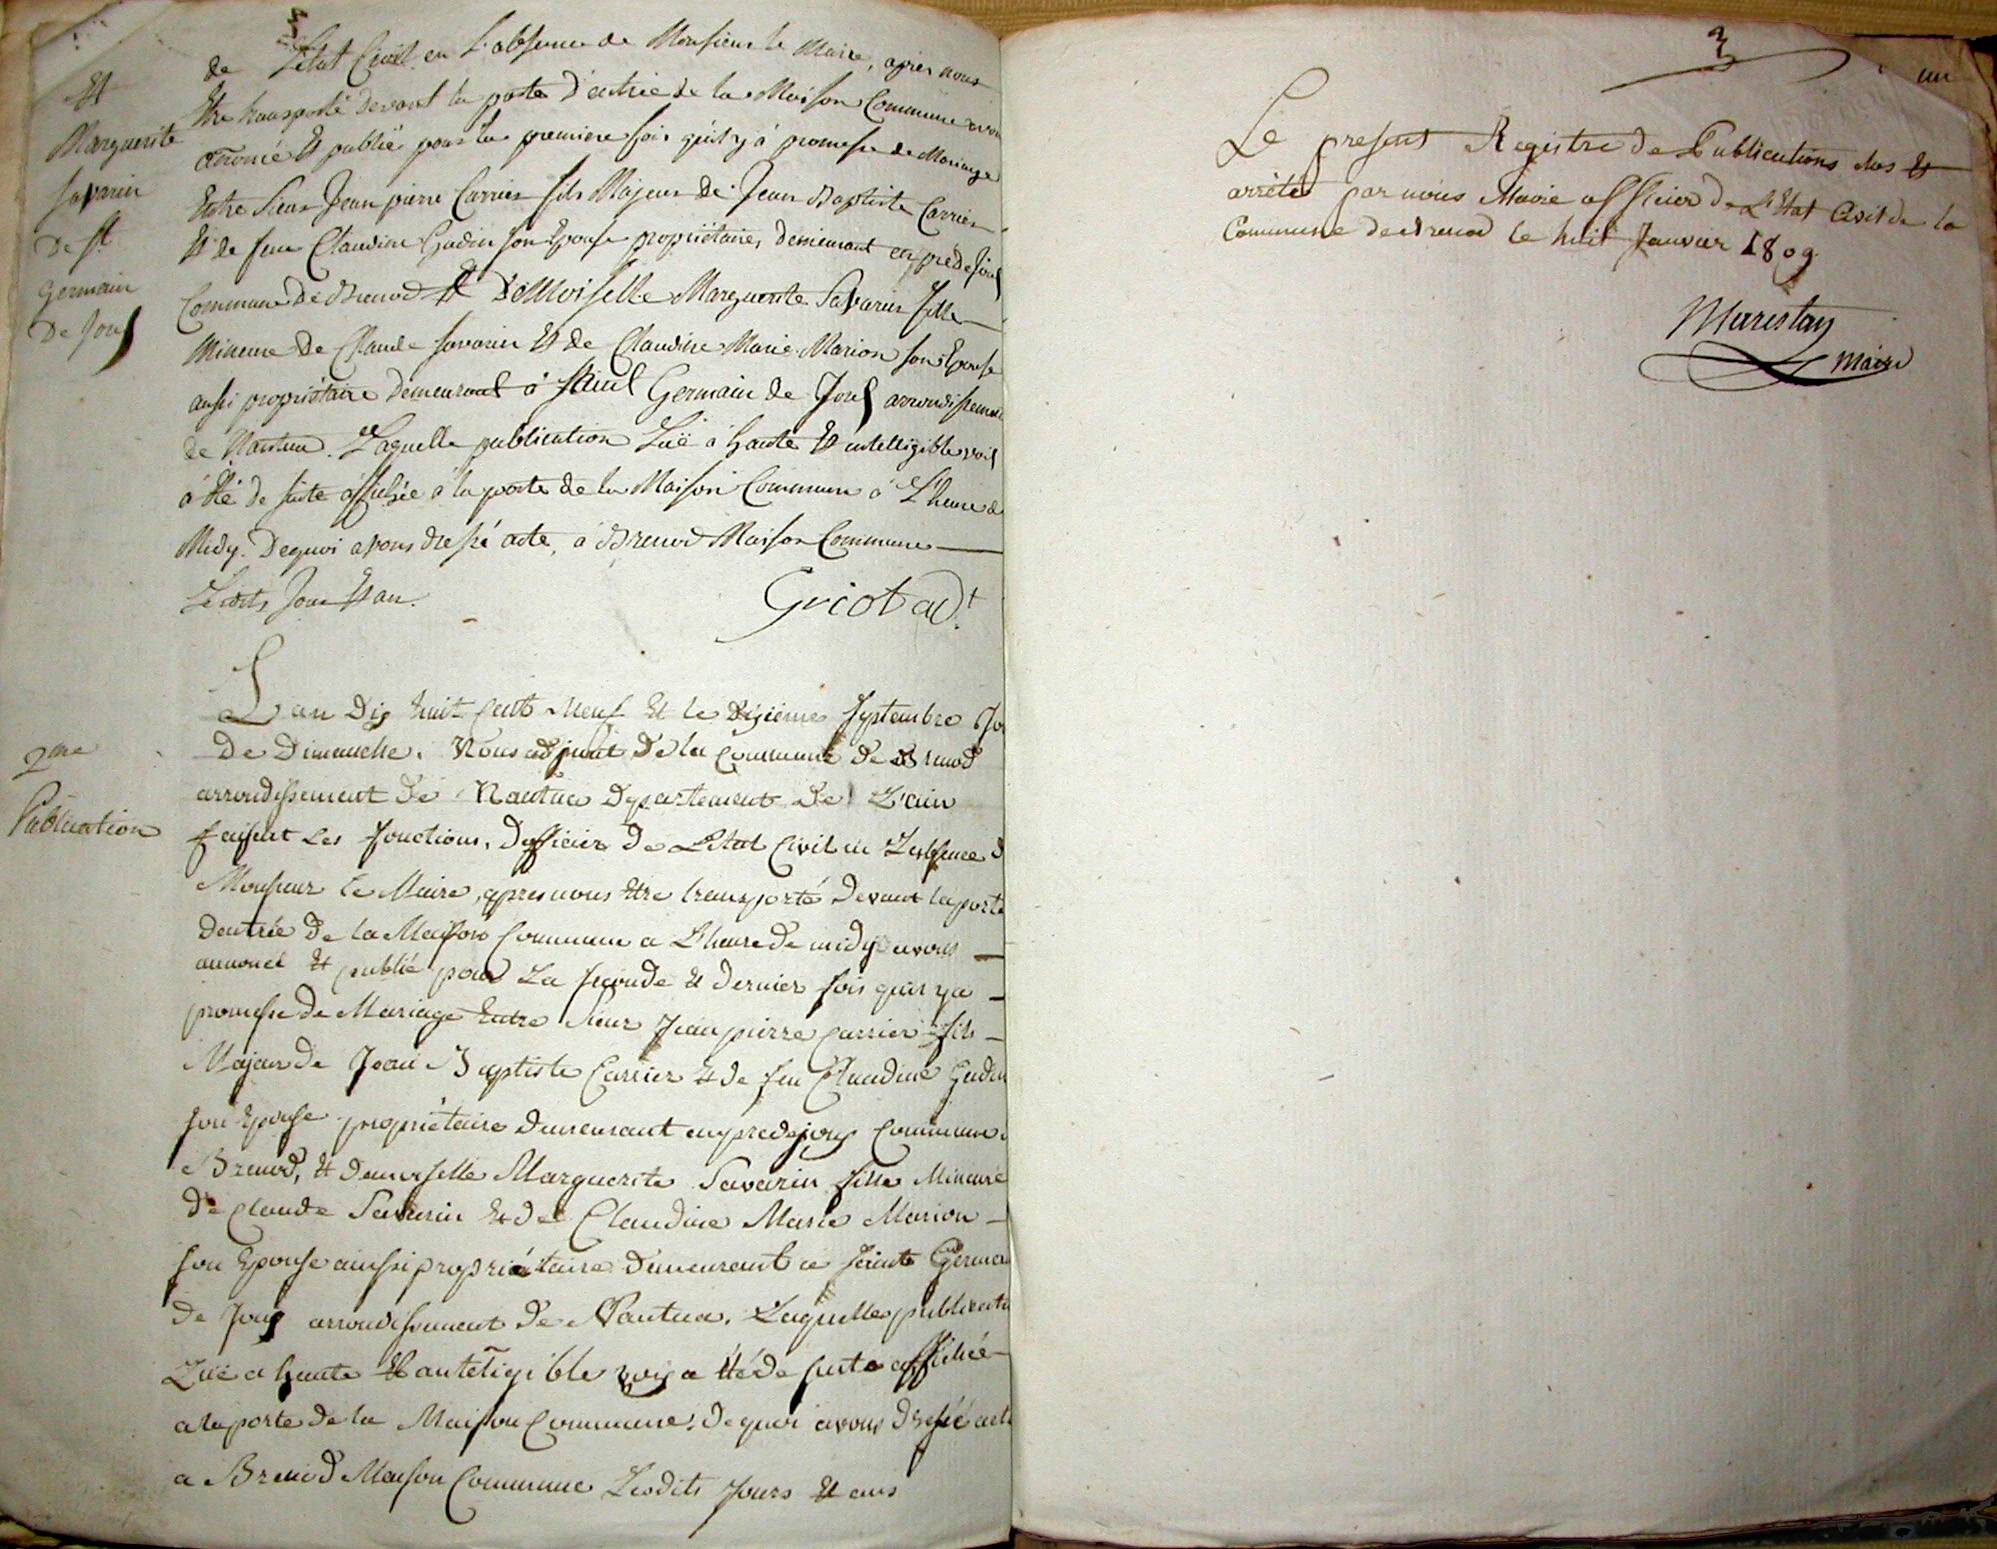 Et
Marguerite
Savarin
De St
Germain
De Joux
de Letat Civil en L'absence de Monsieur le Maire, aprés nous
Etre transporté devant la porte d'entrée de la Maison Commune avons
anoncé Et publié pour la premiere fois qu'il y à promesse de Mariage
Entre Sieur Jean pierre Carrier fils Majeur de Jean Baptiste Carrier
Et de feue Claudine Gudin son Epouse propriétaire, demeurant en prédejoux
Commune de Brenod Et DeMoiselle Marguerite Savarin fille
Mineure de Claude Savarin Et de Claudine Marie Marion son Epouse
aussi propriétaire demeurant à Saint Germain de Joux arrondissement
de Nantua. Laquelle publication Luë à haute Et intelligible voix
à été de suite affichée à la porte de la Maison Commune à L'heure de
Midy. Dequoi avons dressé acte, à Brenod Maison Commune
Lesdits Jour Et an.
Griot adt
2me
Publication
L'an Dix huit Cent Neuf Et le dixieme Septembre Jo
De Dimanche. Nous adjoint De la Commune de Brenod
arrondissement De Nantua Departement De L'ain
faisant Les fonctions, Dofficier De Letat Civil en Labsence d
Monsieur Le Maire, apres nous Etre transporté Devant la porte
Dentrée De La Maison Commune a L'heure De midy avons
annoncé Et publié pour La seconde Et dernier fois quil y a
promesse De Mariage Entre Sieur Jean pierre Carrier fils
Majeur De Jean Baptiste Carrier Et de feu Claudine Gudin
son Epouse propriétaire Demeurant en predejoux Commune
Brenod, Et demoiselle Marguerite Savarin fille Mineure
De Claude Savarin Et de Claudine Marie Marion
son Epouse aussi propriétaire Demeurant a Sainte Germa
de Joux arrondissement De Nantua. Laquelle publicatio
Luë a haute Et antéligible voix a Eté De suite affichée
a la porte de la Maison Commune, De quoi avons Dressé acte
a Brenod Maison Commune Lesdits Jours Et ans
3
un
Le present Registre de Publications clos Et
arrété par nous Maire officier de L'Etat Civil de la
Commune de Brenod le huit Janvier 1809
Marestan
Maire